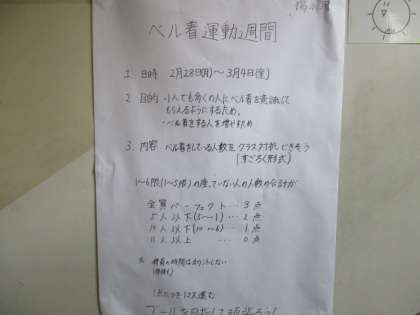 掲示用
ベル着運動週間
1. 日時 2月28日(月)〜3月4日(金)
2. 目的 ・1人でも多くの人にベル着を意識して
もらえるようにするため。
・ベル着をする人を増やすため
3. 内容 ベル着をしている人数をクラス対抗できそう
(すごろく形式)
1〜6限(1〜5限)の座っていない人の人数の合計が
全員パーフェクト… 3点
5人以下(5〜1)… 2点
10人以下(10〜6)… 1点
11人以上 … 0点
の時間はカウントしない
1点につき1マス進む
ゴールを目指して頑張ろう!